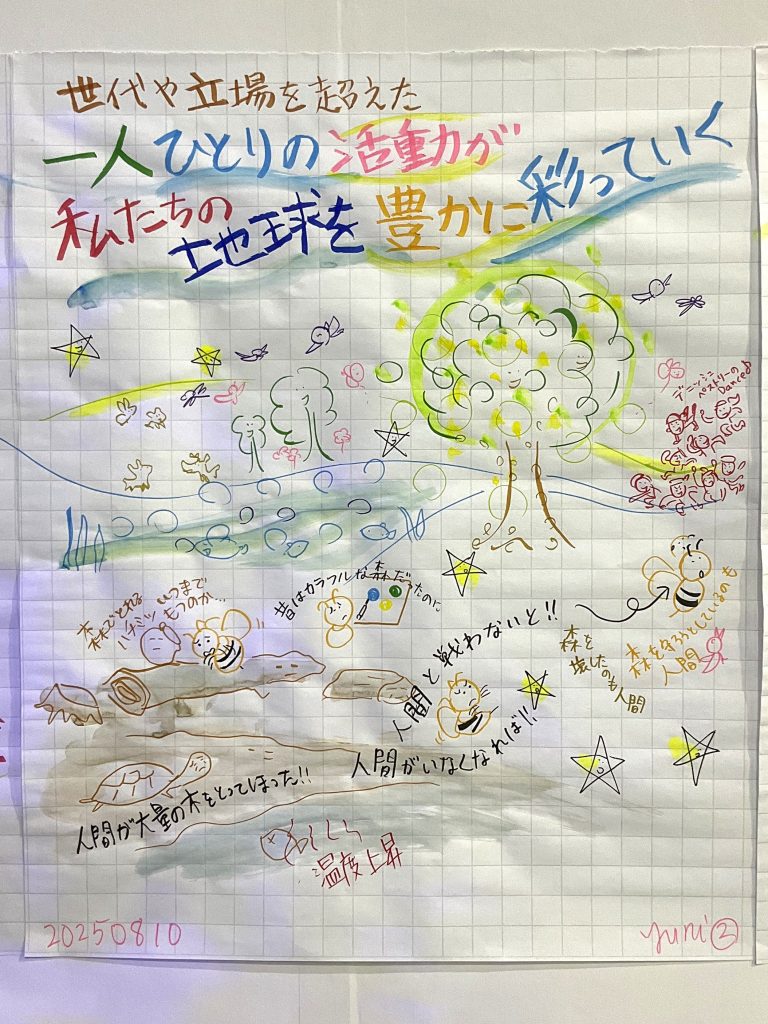 世代や立場を超えた
一人ひとりの活動が
私たちの地球を豊かに彩っていく
デニッシュ
ペストリーの
Dance♪
森でとれる
ハチミツ いつまで
もつのか…
昔はカラフルな森だったのに
人間と戦わないと!!
森を
壊したのも人間
森を守ろうとしているのも
人間
人間がいなくなれば!!
人間が大量の木をとってしまった!!
温度上昇
20250810
yuni②